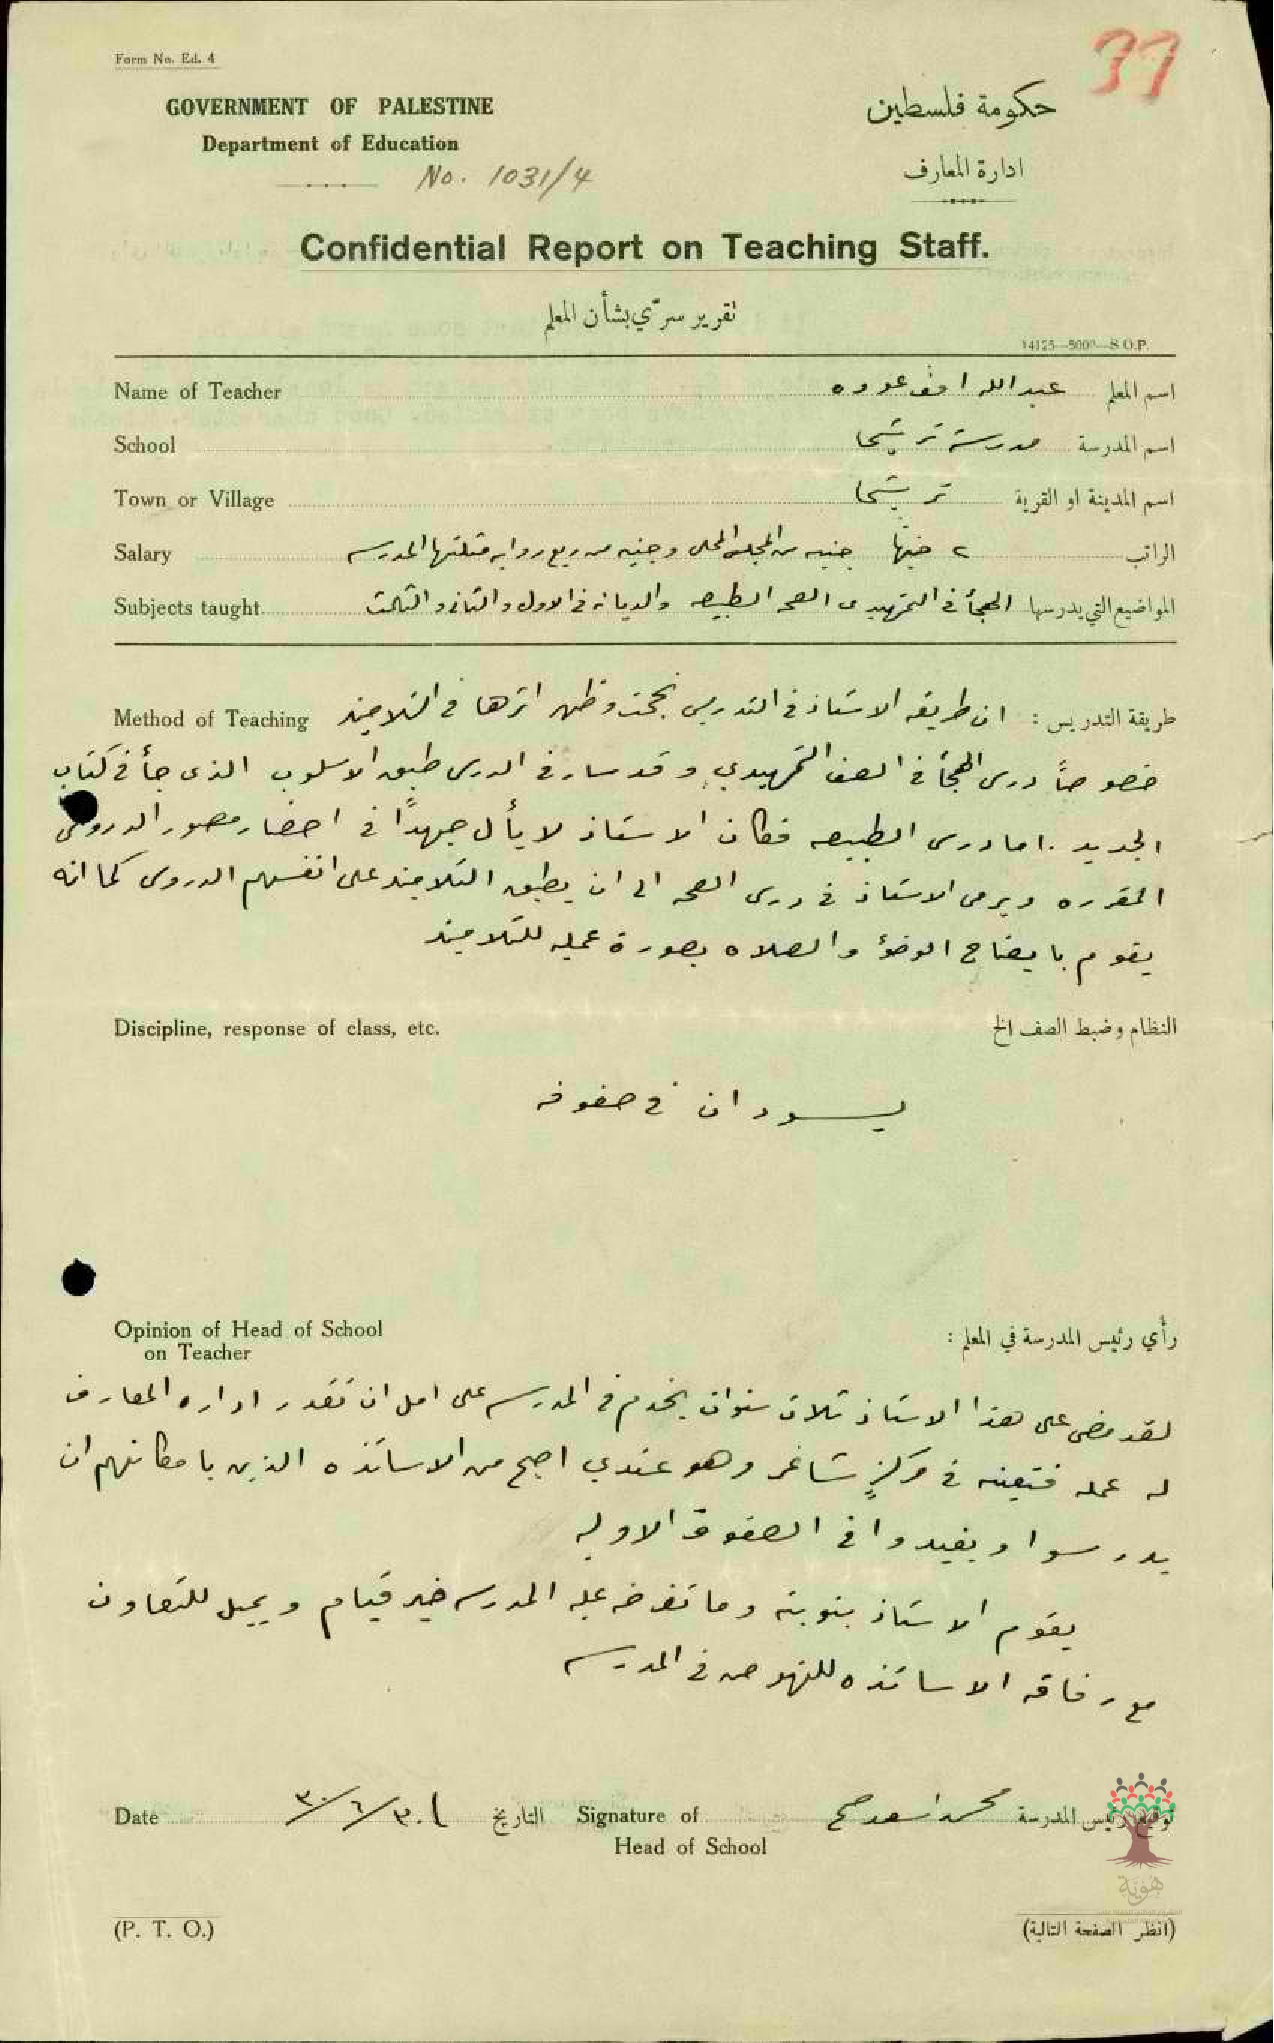 37
Form No. Ed. 4
GOVERNMENT OF PALESTINE
حكومة فلسطين
Department of Education
ادارة المعارف
No. 1031/4
Confidential Report on Teaching Staff.
تقرير سرّي بشأن المعلم
14125—5000—S.O.P.
Name of Teacher عبدالله عوده اسم المعلم
School مدرسة ترشيحا اسم المدرسة
Town or Village ترشيحا اسم المدينة او القرية
Salary ٢ جنيه من المجلس المحلي وجنيه من ريع روايه مثلتها المدرسه الراتب
Subjects taught الهجأ في التمهيدي الصحه الطبيعه والديانه في الاول والثاني والثالث المواضيع التي يدرسها
Method of Teaching طريقة التدريس : ان طريقة الاستاذ في التدريس نجحت وظهر اثرها في التلاميذ
خصوصاً درس الهجأ في الصف التمهيدي وقد سار في الدرس طبق الاسلوب الذي جأ في كتاب
الجديد . اما درس الطبيعه فكان الاستاذ لا يأل جهداً في احضار مصور الدروس
المقرره ويرمي الاستاذ في درس الصحه الى ان يطبق التلاميذ على انفسهم الدروس كما انه
يقوم بايضاح الوضؤ والصلاه بصورة عمليه للتلاميذ
Discipline, response of class, etc. النظام وضبط الصف الخ
يسودان في صفوفه
Opinion of Head of School
on Teacher
رأي رئيس المدرسة في المعلم :
لقد مضى على هذا الاستاذ ثلاث سنوات يخدم في المدرسه على امل ان تقدر اداره المعارف
له عمله فتعينه في مركزٍ شاغر وهو عندي اصلح من الاساتذه الذين بامكانهم ان
يدرسوا ويفيدوا في الصفوف الاوليه
يقوم الاستاذ بنوبته وما تفرضه عليه المدرسه خير قيام ويميل للتعاون
مع رفاقه الاساتذه للنهوض في المدرسه
Date ٣٠/٦/٣٠ التاريخ Signature of محمد اسعد توقيع رئيس المدرسة
Head of School
هوية
(P. T. O.) (انظر الصفحة التالية)